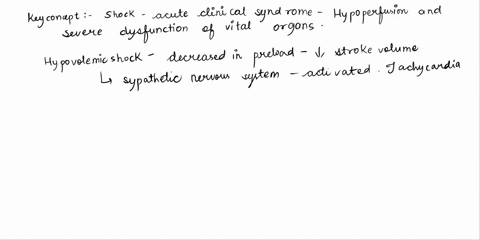 Key concept :- Shock - acute clinical syndrome - Hypoperfusion and
severe dysfunction of vital organs.
Hypovolemic shock - decreased in preload - ↓ stroke volume
↳ sypathetic nervous system - activated. Tachycardia